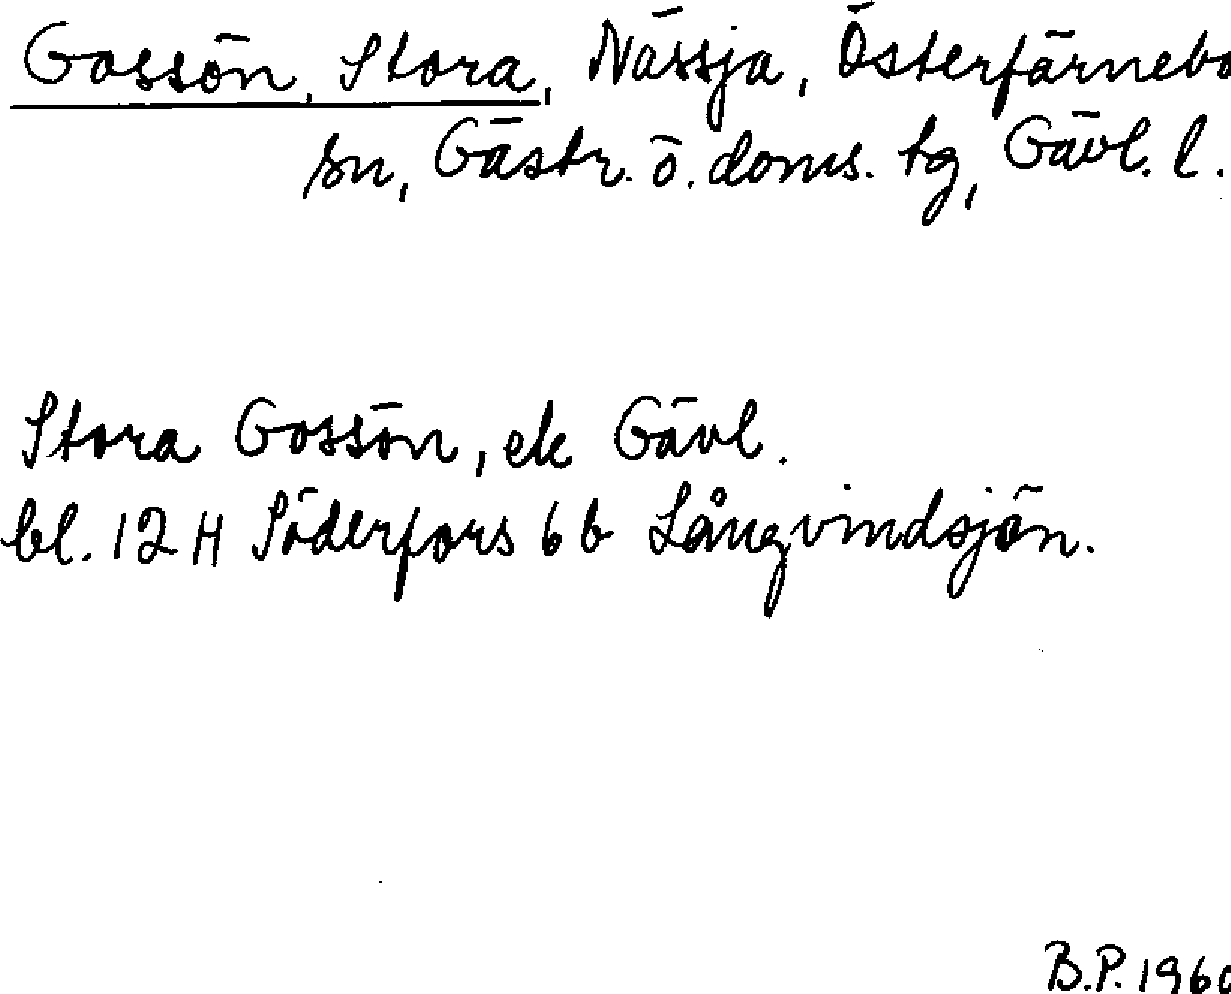 Gossön, Stora, Nässja, Österfärnebo
sn, Gästr. ö. doms. tg, Gävl. l.
Stora Gossön, ek Gävl.
bl. 12 H Söderfors 6 b Långvindsjön.
B.P. 1960